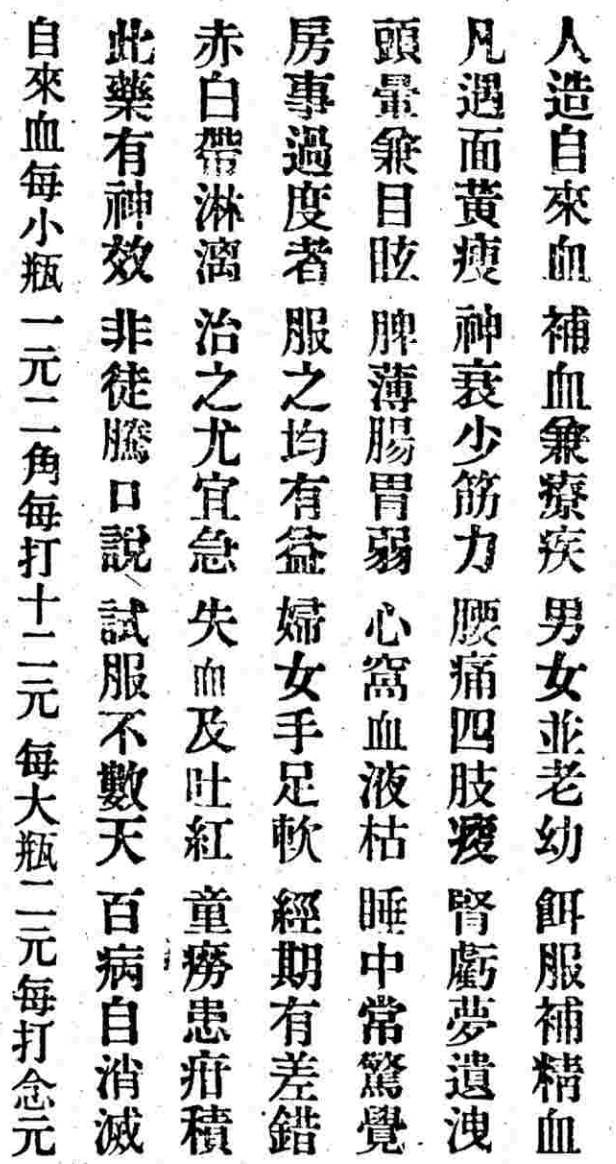 人造自來血 補血兼療疾 男女並老幼 餌服補精血
凡遇面黃瘦 神衰少筋力 腰痛四肢痠 腎虧夢遺洩
頭暈兼目眩 脾薄腸胃弱 心窩血液枯 睡中常驚覺
房事過度者 服之均有益 婦女手足軟 經期有差錯
赤白帶淋漓 治之尤宜急 失血及吐紅 童癆患疳積
此藥有神效 非徒騰口說 試服不數天 百病自消滅
自來血每小瓶一元二角每打十二元 每大瓶二元每打念元